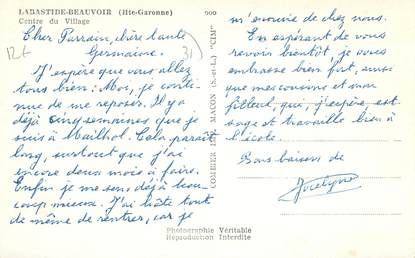 LABASTIDE-BEAUVOIR (Hte-Garonne)
Centre du Village
12F
31
Cher Parrain, chère tante
Germaine.
J'espère que vous allez
tous bien. Moi, je conti-
nue de me reposer. Il y a
déjà cinq semaines que je
suis à Mailhol. Cela paraît
long, surtout que j'ai
encore deux mois à faire.
Enfin je me sens déjà beau-
coup mieux. J'ai hâte tout
de même de rentrer, car je
COMBIER IMP. MACON (S.-et-L.) "CIM"
m'ennuie de chez nous.
En espérant de vous
revoir bientôt, je vous
embrasse bien fort, ainsi
que mes cousins et mon
filleul, qui, j'espère, est
sage et travaille bien à
l'école.
Bons baisers de
Jocelyne
Photographie Véritable
Reproduction Interdite